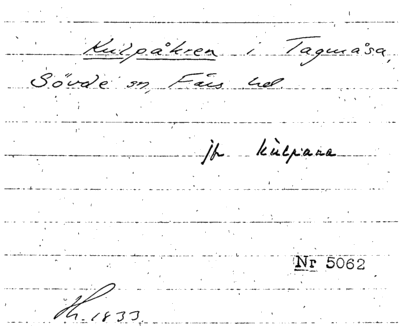 Kulpåkren i Tagmåsa,
Sövde sn, Färs hd
jfr kulpana
Nr 5062
1833